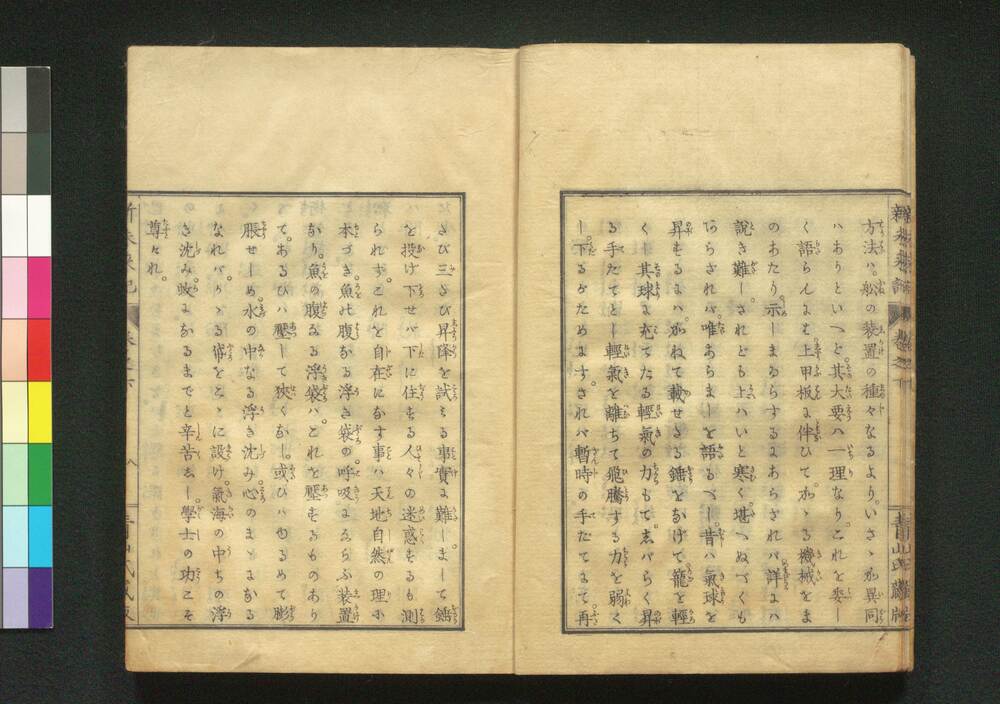 方法ハ。般の裝置の種々なるより。いさゝか異同
ハありといへど。其大要ハ一理なり。これを委し
く語らんにも上甲板に伴ひて。かゝる機械をま
のあたり。示しまゐらするにあらざれバ。詳にハ
説き難し。されども上ハいと寒く堪へぬべくも
あらざれバ。唯あらましを語るべし。昔ハ氣球を
昇するにハ。かねて載せたる錘をなげて籠を輕
くし。其球に充てたる輕氣の力もて。志バらく昇
る手だてとし。輕氣を離ちて飛騰する力を弱く
し。下るがためにす。されバ暫時の手だてにて。再
さび三たび昇降を試みる事實に難し。まして錘
を投げ下せバ。下に住する人々の迷惑するも測
られず。これを自在になす事ハ。天地自然の理に
本づき。魚の腹なる浮き袋の呼吸にならふ裝置
なり。魚の腹なる浮袋ハ。これを壓するものあり
て。あるひハ壓して狹くなし。或ひハゆるめて膨
脹せしめ。水の中なる浮き沈み心のまゝになる
なれバ。かゝる術をこゝに設け。氣海の中ちの浮
き沈み。故になるまでと辛苦せし。學士の功こそ
尊とけれ。
新未來記
青山氏藏版